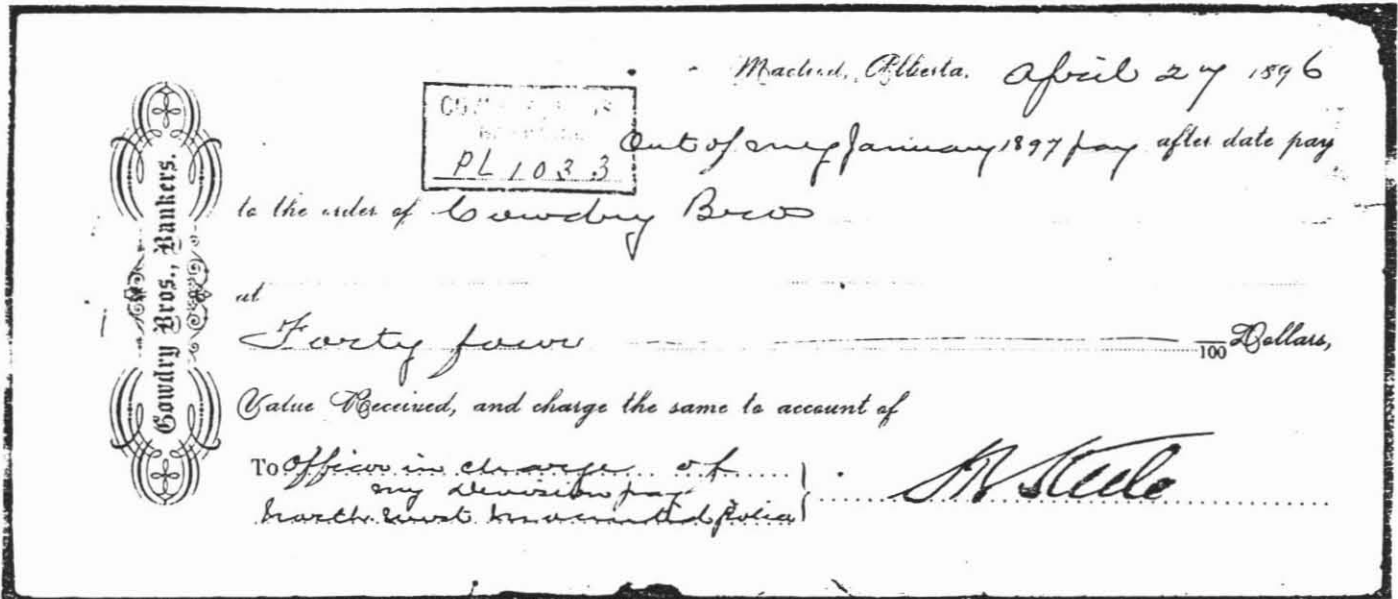 Macleod, Alberta. April 27 1896
PL 1033
Out of my January 1897 pay after date pay
to the order of Cowdry Bros
at
Forty four 100 Dollars,
Value Received, and charge the same to account of
To Officer in charge of
my Division pay
North West Mounted Police
Steele
Cowdry Bros., Bankers.